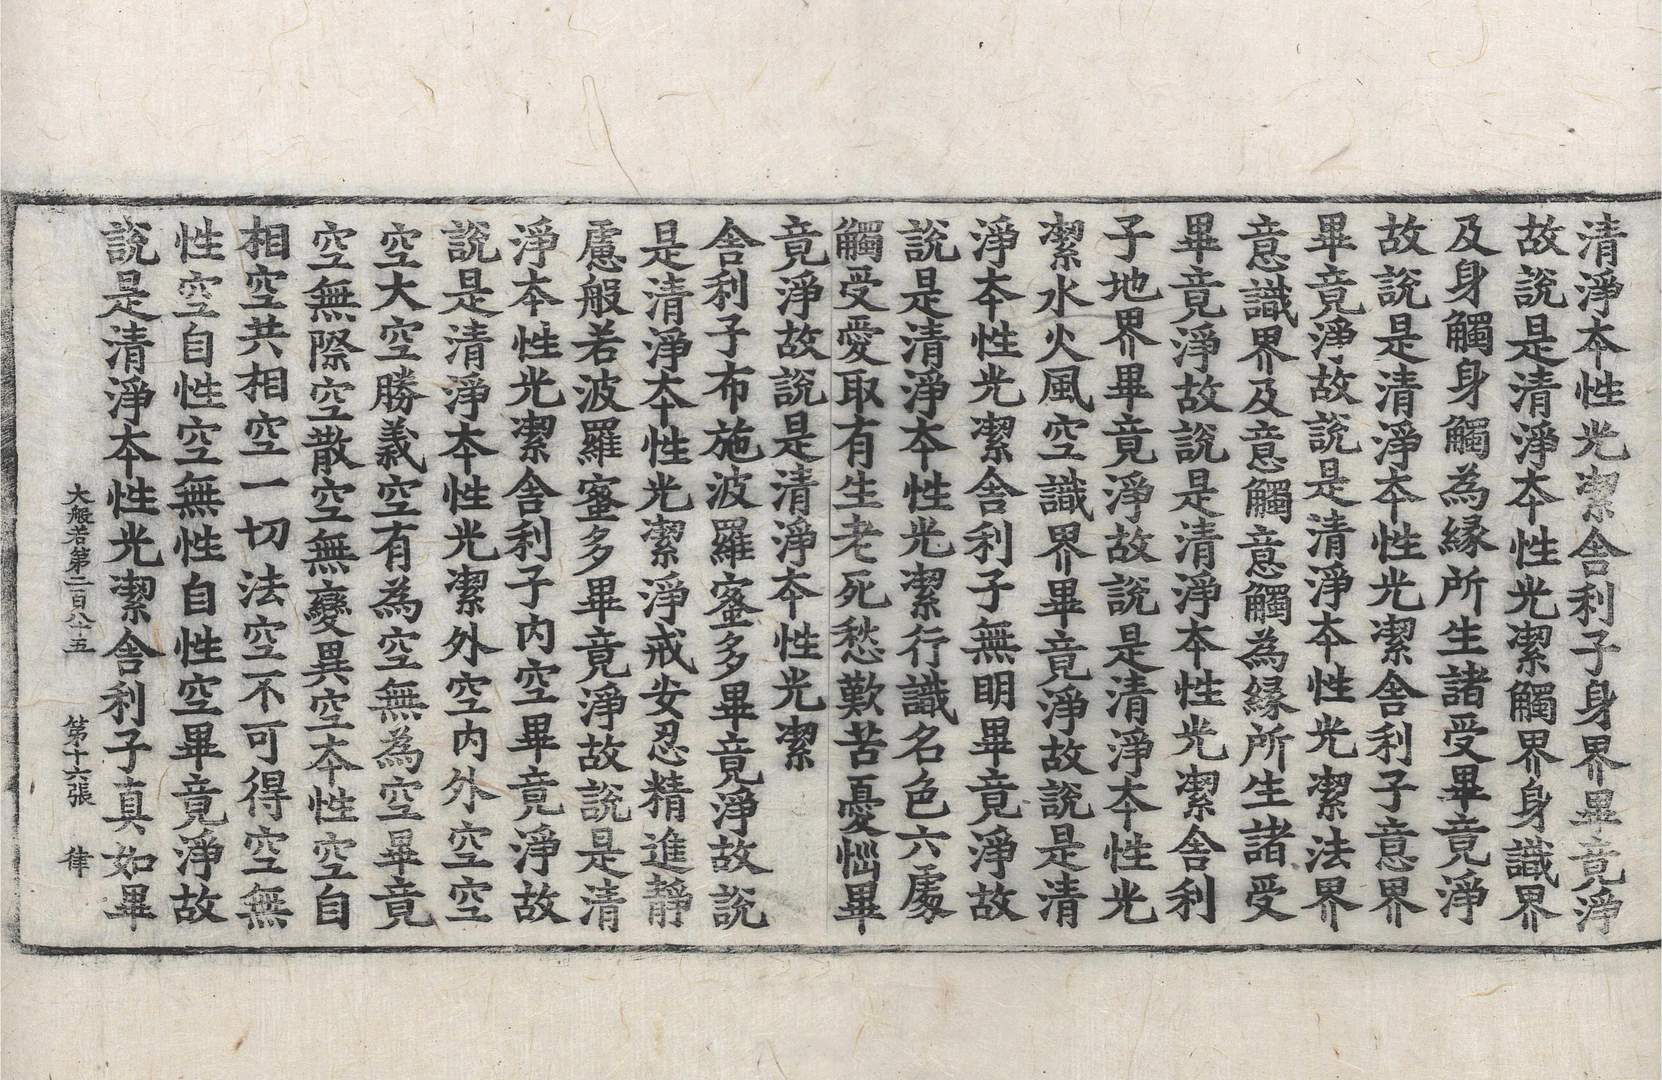 清淨本性光潔舍利子身界畢竟淨
故說是清淨本性光潔觸界身識界
及身觸身觸為緣所生諸受畢竟淨
故說是清淨本性光潔舍利子意界
畢竟淨故說是清淨本性光潔法界
意識界及意觸意觸為緣所生諸受
畢竟淨故說是清淨本性光潔舍利
子地界畢竟淨故說是清淨本性光
潔水火風空識界畢竟淨故說是清
淨本性光潔舍利子無明畢竟淨故
說是清淨本性光潔行識名色六處
觸受愛取有生老死愁歎苦憂惱畢
竟淨故說是清淨本性光潔
舍利子布施波羅蜜多畢竟淨故說
是清淨本性光潔淨戒安忍精進靜
慮般若波羅蜜多畢竟淨故說是清
淨本性光潔舍利子內空畢竟淨故
說是清淨本性光潔外空內外空空
空大空勝義空有為空無為空畢竟
空無際空散空無變異空本性空自
相空共相空一切法空不可得空無
性空自性空無性自性空畢竟淨故
說是清淨本性光潔舍利子真如畢
大般若第二百八十五 第十六張 律